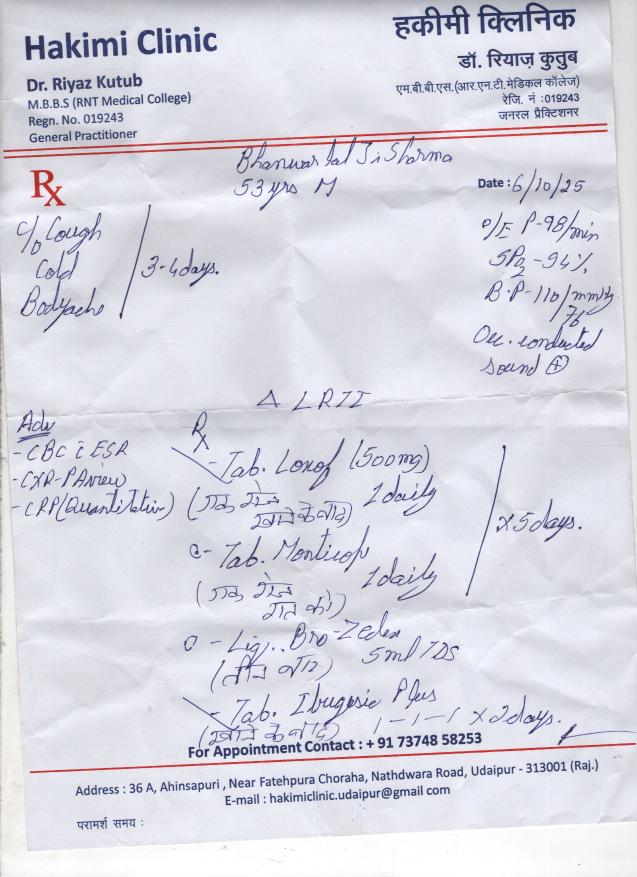 Hakimi Clinic
Dr. Riyaz Kutub
M.B.B.S (RNT Medical College)
Regn. No. 019243
General Practitioner
हकीमी क्लिनिक
डॉ. रियाज़ कुतुब
एम.बी.बी.एस.(आर.एन.टी.मेडिकल कॉलेज)
रेजि. नं :019243
जनरल प्रैक्टिशनर
Rx
Bhanwar lal Ji Sharma
53yrs M
Date : 6/10/25
c/o Cough
Cold
Bodyache
3-4 days.
O/E P-98/min
SPO2 -94%
B.P-110/76 mmHg
Occ. conducted
sound (+)
Δ LRTI
Adv
- CBC c ESR
- CXR-PA view
- CRP (Quantitative)
Rx
- Tab. Loxof (500mg)
(एक गोली 1 daily
खाने के बाद)
- Tab. Monticop
(एक गोली 1 daily
रात को)
x 5 days.
- Liq. Bro-Zedex
(तीन बार) 5ml TDS
- Tab. Ibugesic Plus
(खाने के बाद) 1-1-1 x 2 days.
For Appointment Contact : + 91 73748 58253
Address : 36 A, Ahinsapuri , Near Fatehpura Choraha, Nathdwara Road, Udaipur - 313001 (Raj.)
E-mail : hakimiclinic.udaipur@gmail.com
परामर्श समय :